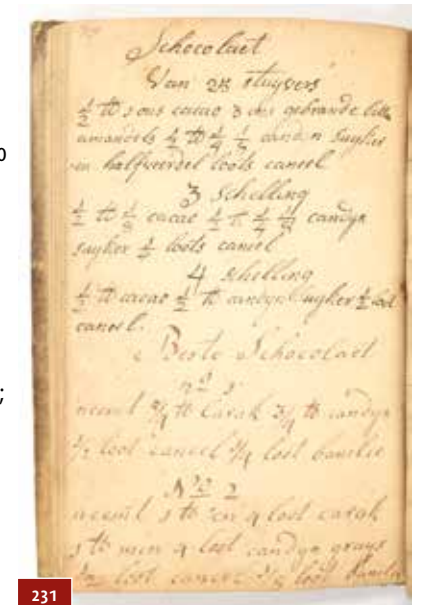 Schocolaet
Van 28 stuyvers
½ ℔ 1 ons cacao 3 ons gebrande bitt
amandels ½ ℔ ¼ candyn suyker
en half vierdel loots caneel
3 schelling
½ ℔ ⅛ cacao ½ ℔ ¼ ⅛ candyn
suyker ½ loots caneel
4 schelling
½ ℔ cacao ½ ℔ candyn suyker ½ loot
caneel.
Beste Schocolaet
nº 1
neemt ¾ ℔ Carak ¾ ℔ candyn
½ loot caneel ¼ loot banilie
Nº 2
neemt 1 ℔ en 4 loot carak
1 ℔ min 4 loot candyn
loot caneel loot
231